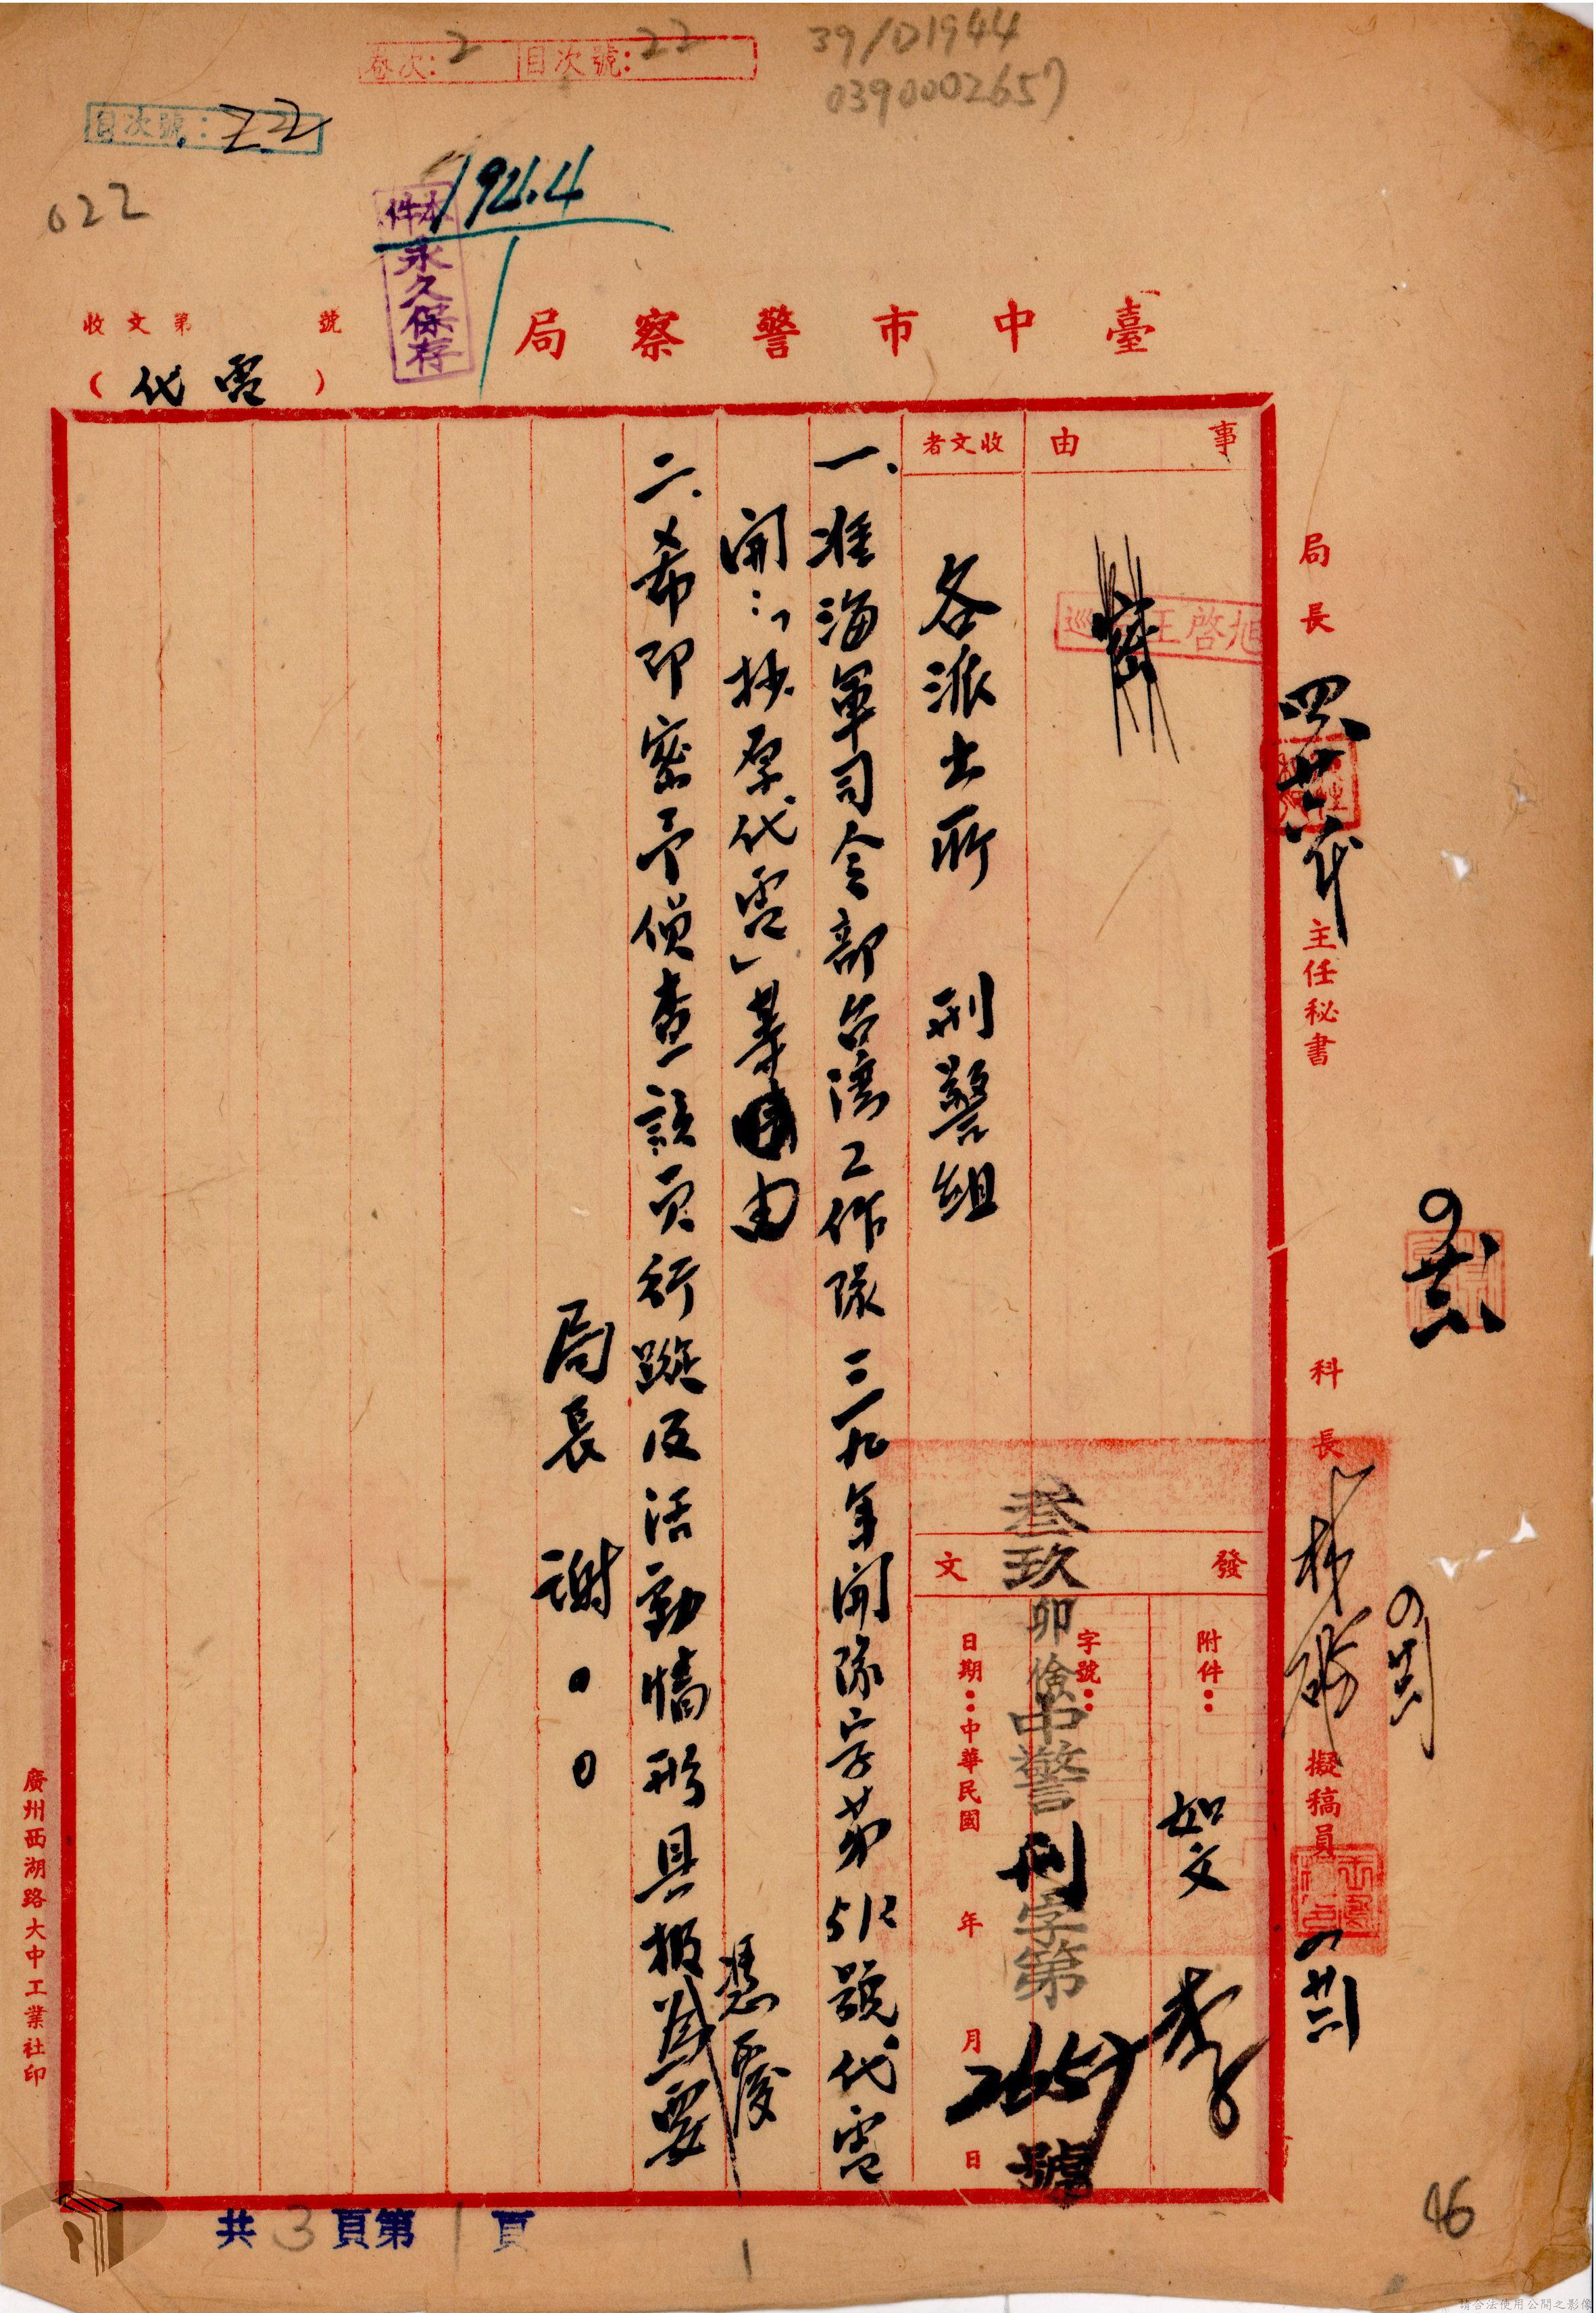 卷次：2 目次號：22
39/D1944
0390002657
目次號：22
022
194.4
本件永久保存
臺中市警察局
收文第 號
（代電）
事由
收文者
各派出所 刑警組
一、准海軍司令部台湾工作隊三九年開隊字第512號代電
開：「抄原代電」等由
二、希即密予偵查該員行蹤及活動情形具報為要
憑覆
局長 謝
發文
附件：如文
字號：
叁玖卯儉中警刑字第2657號
日期：中華民國 年 月 日
局長
主任秘書
科長
擬稿員
廣州西湖路大中工業社印
共3頁第1頁
1
46
請合法使用公開之影像